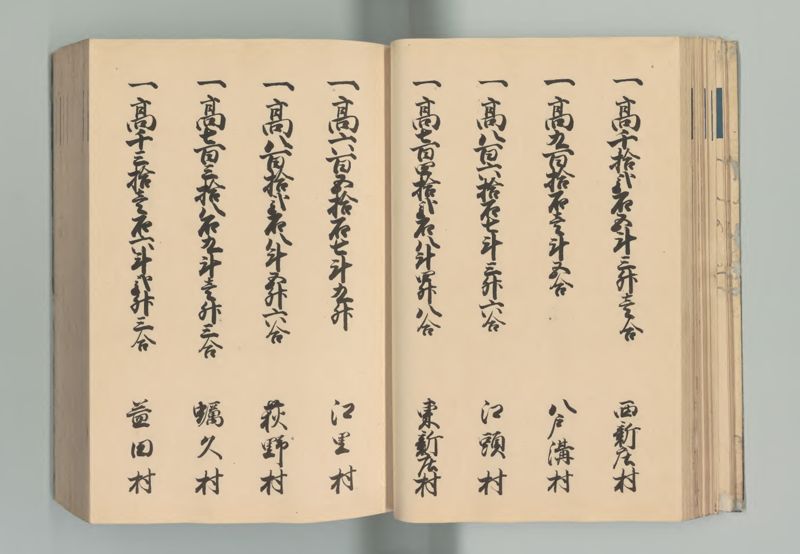 一 高千拾弐石五斗三升壱合 西新庄村
一 高九百拾石壱斗五合 八戸溝村
一 高八百六拾石七斗三升六合 江頭村
一 高七百四拾弐石八斗四升八合 東新庄村
一 高六百五拾石七斗九升 江里村
一 高八百拾弐石八斗五升六合 荻野村
一 高七百三拾八石九斗壱升三合 蠣久村
一 高千三拾壱石六斗弐升三合 益田村